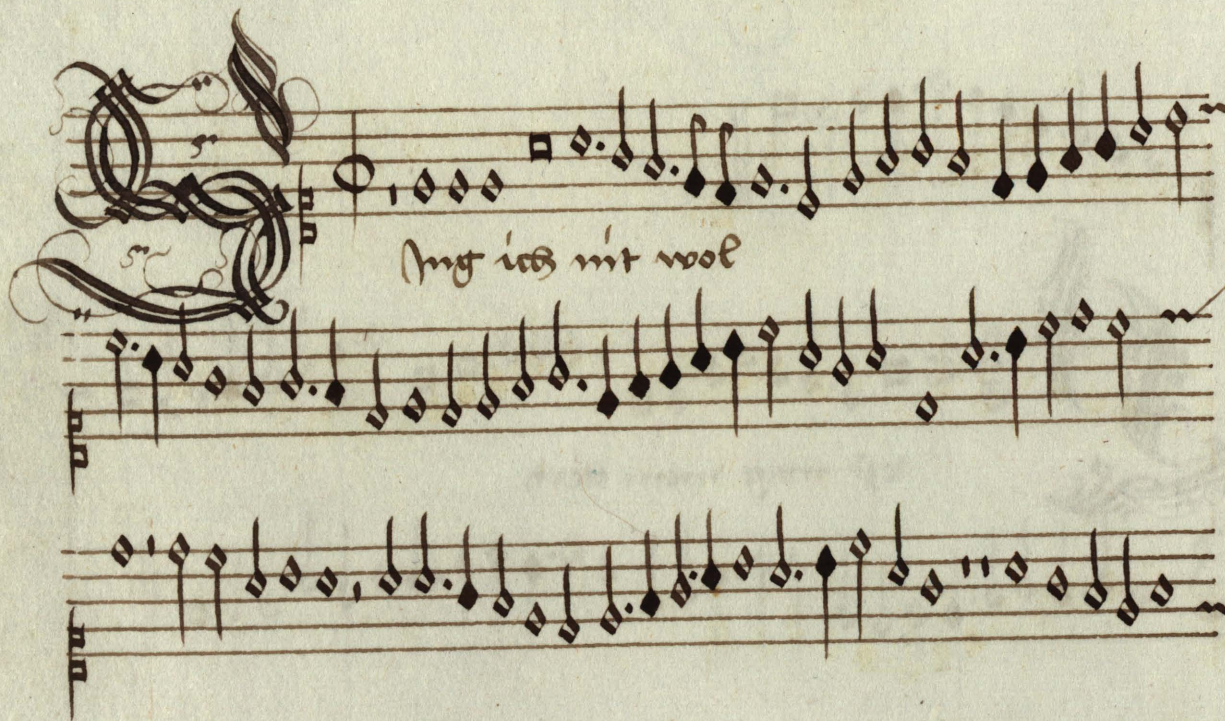 Sing ich nit wol